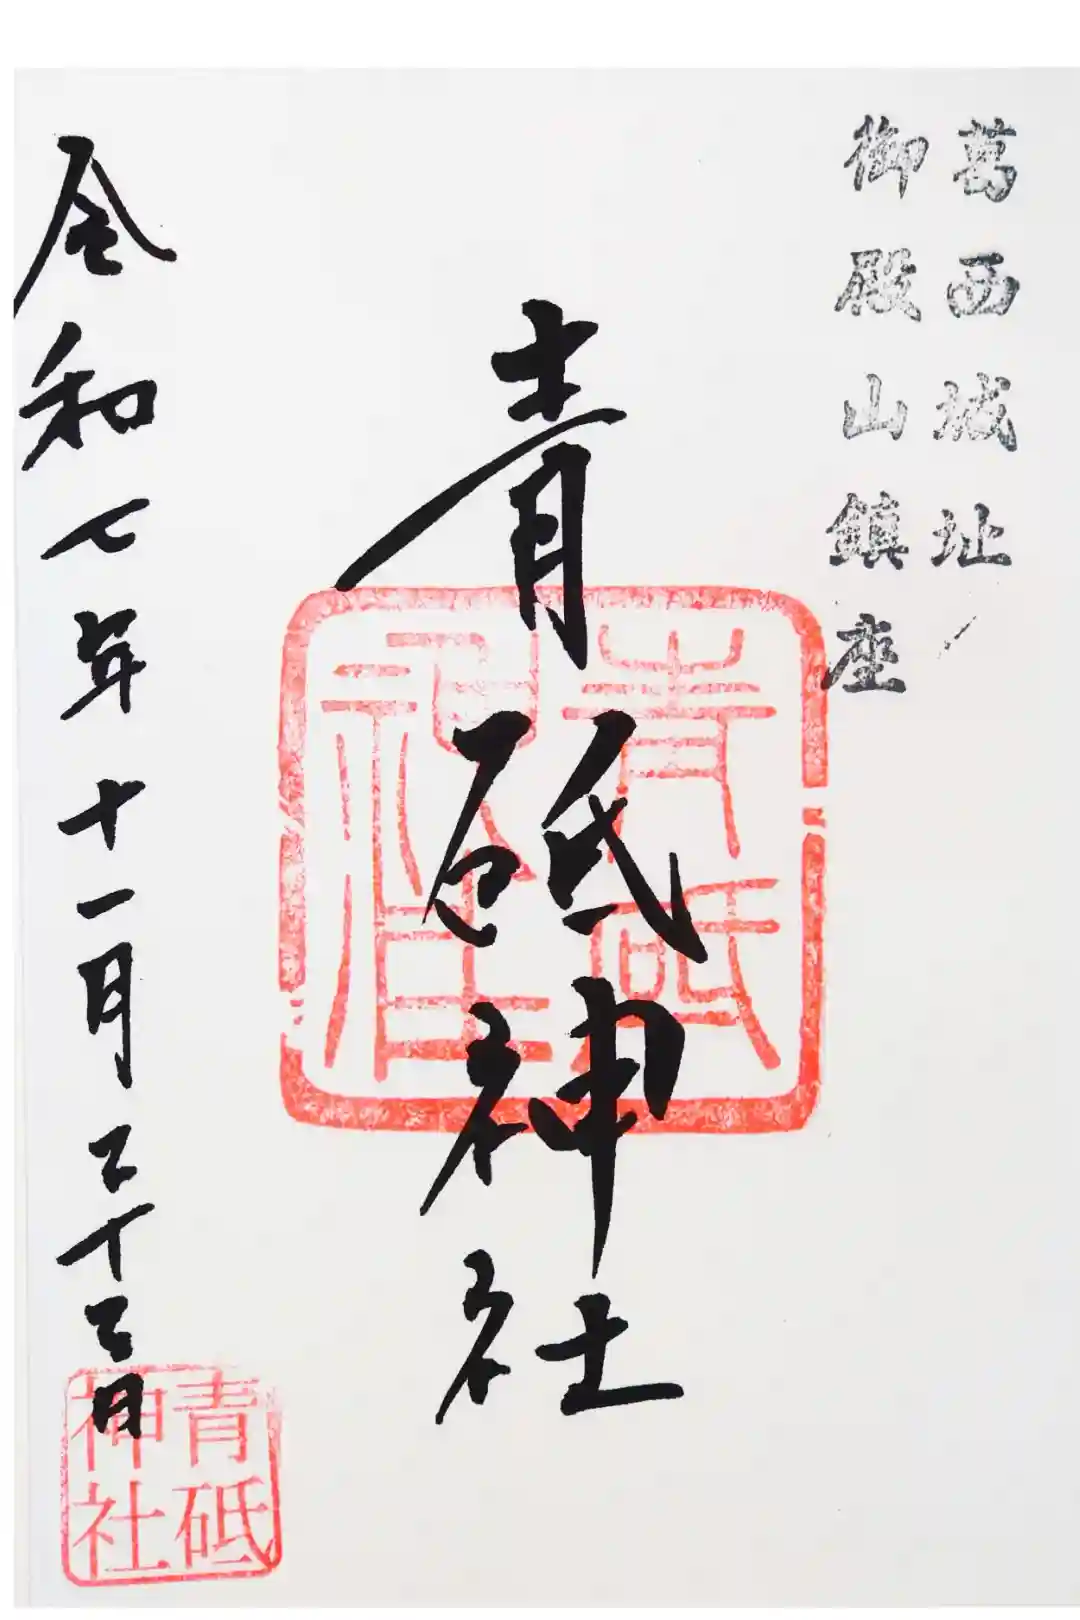 葛西城址
御殿山鎮座
青砥神社
青砥
神社
令和七年十一月二十三日
青砥
神社